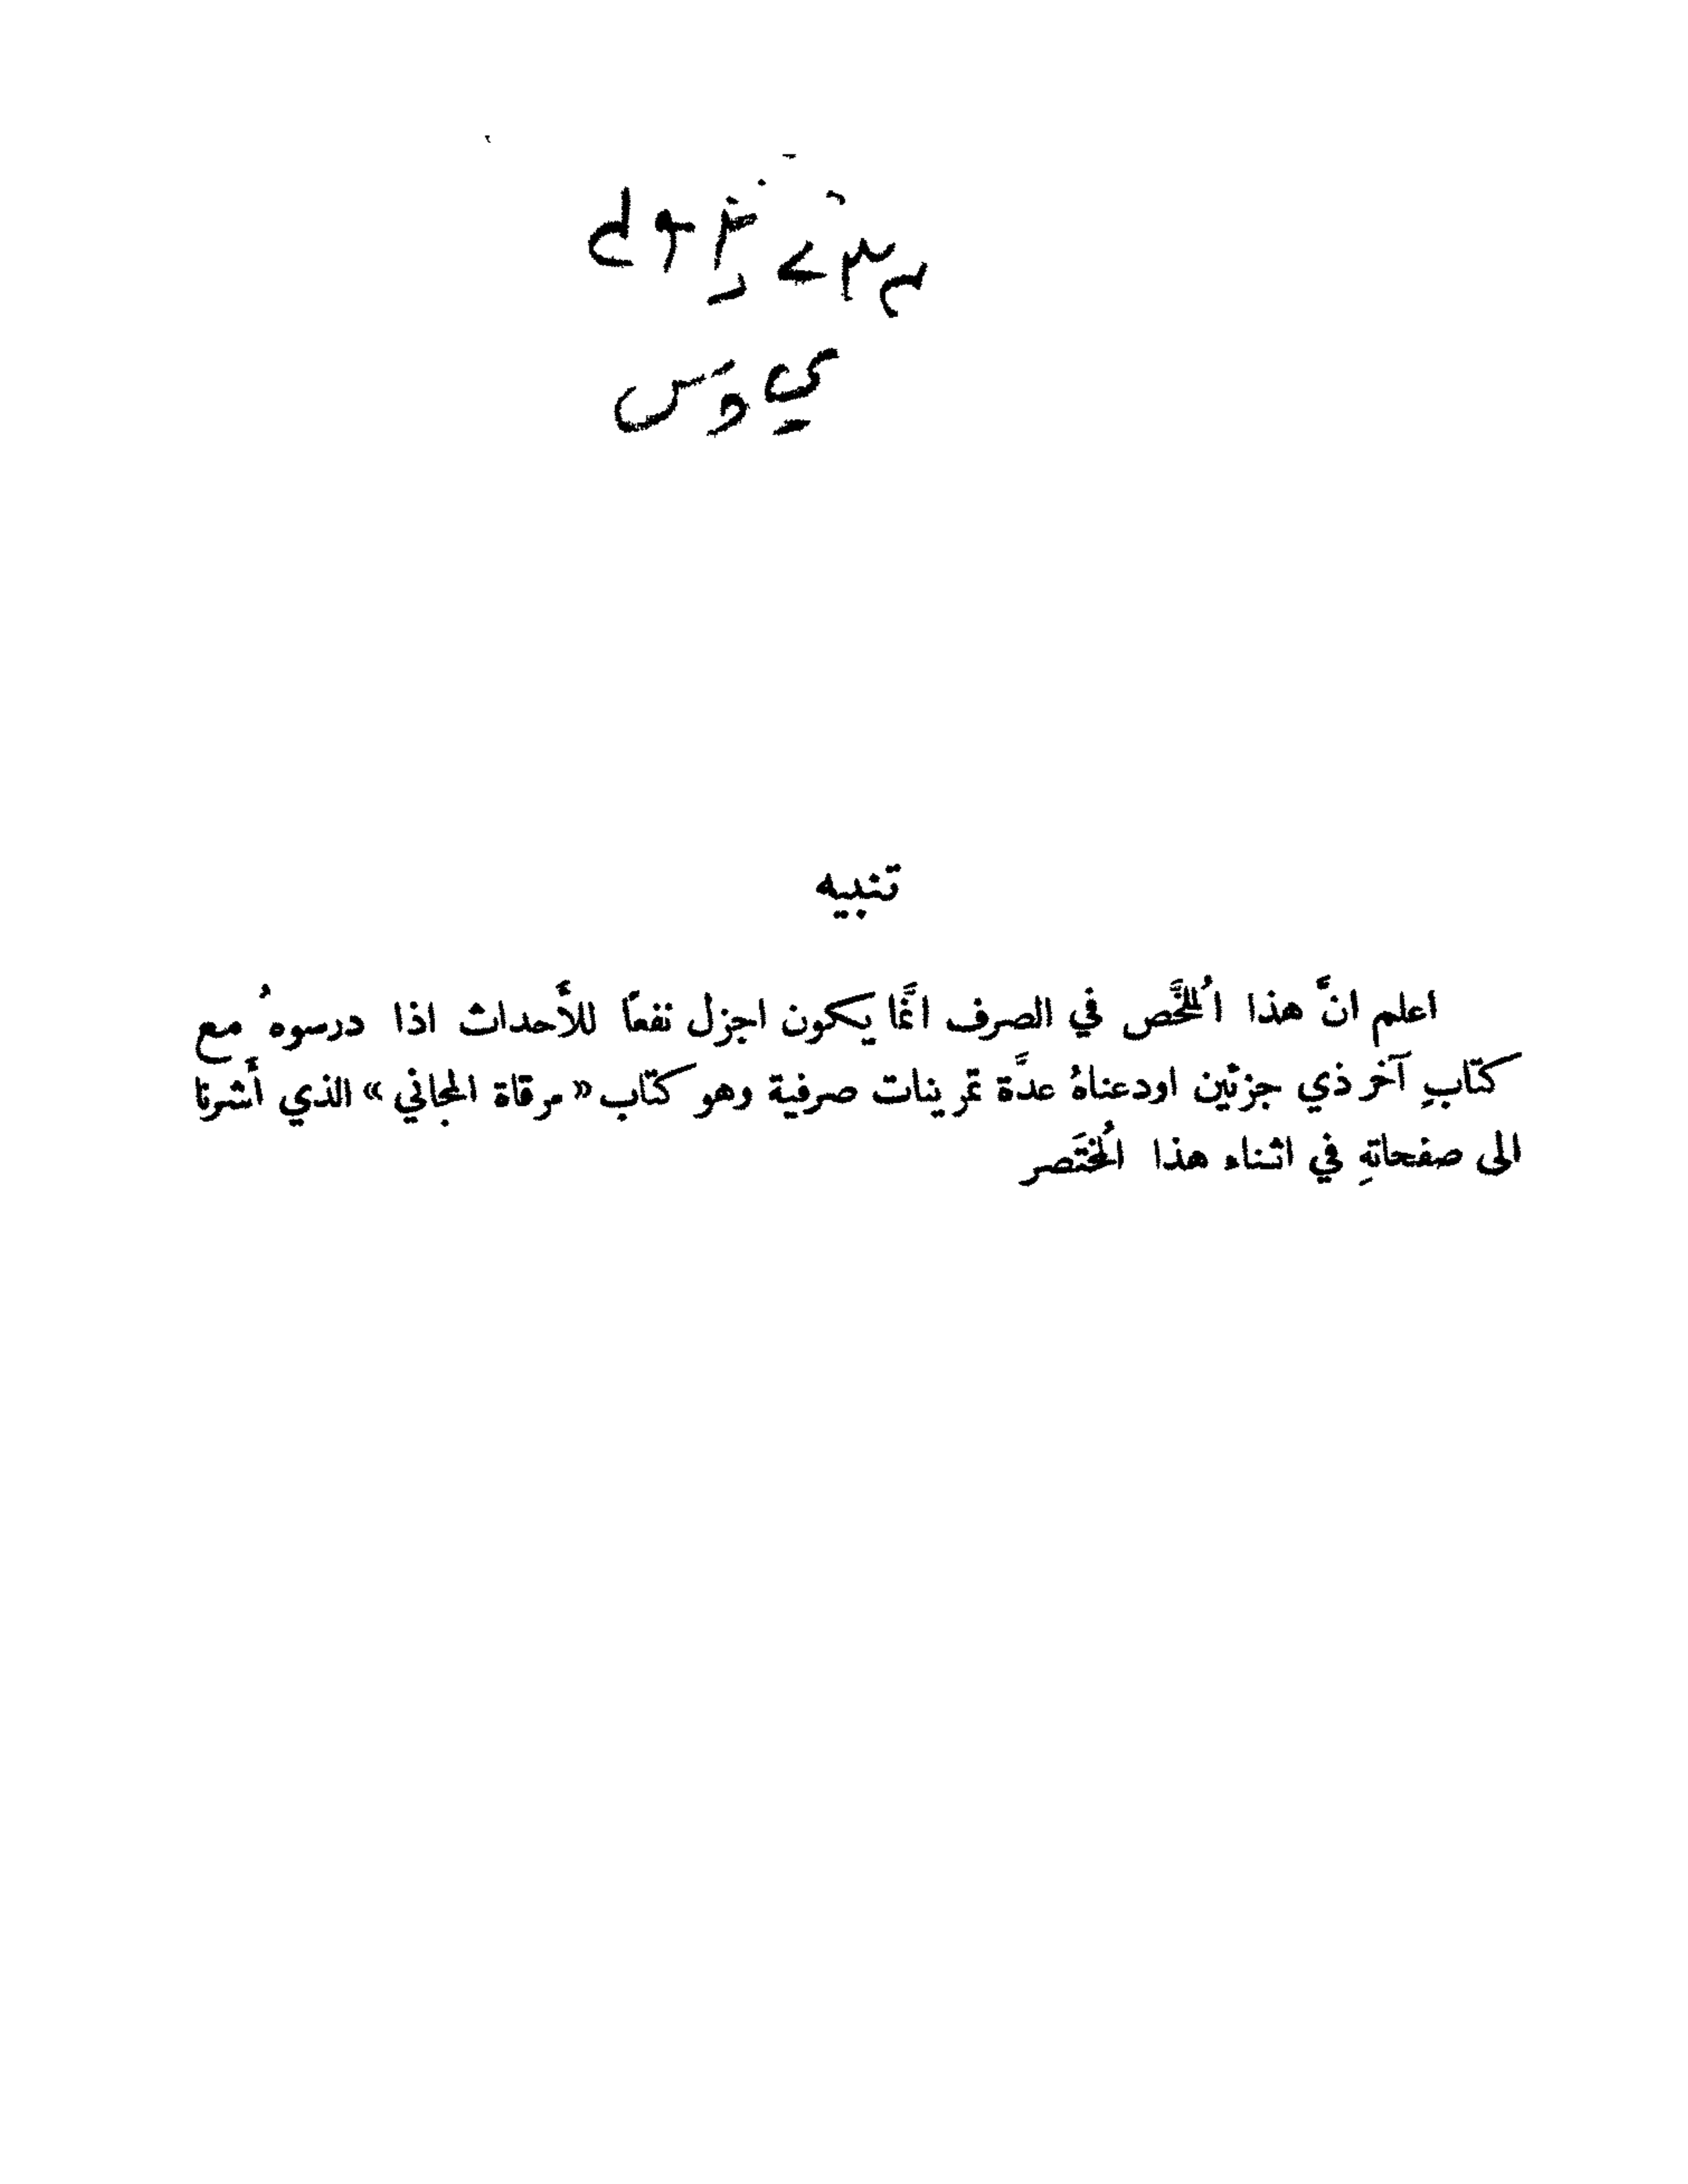 تنبيه
اعلم انَّ هذا المُلخَّص في الصرف انَّما يكون اجزل نفعًا للأَحداث اذا درسوهُ مع
كتابٍ آخر ذي جزئين اودعناهُ عدَّة تمرينات صرفية وهو كتاب «مرقاة المجاني» الذي أَشرنا
الى صفحاتهِ في اثناء هذا المُختَصر